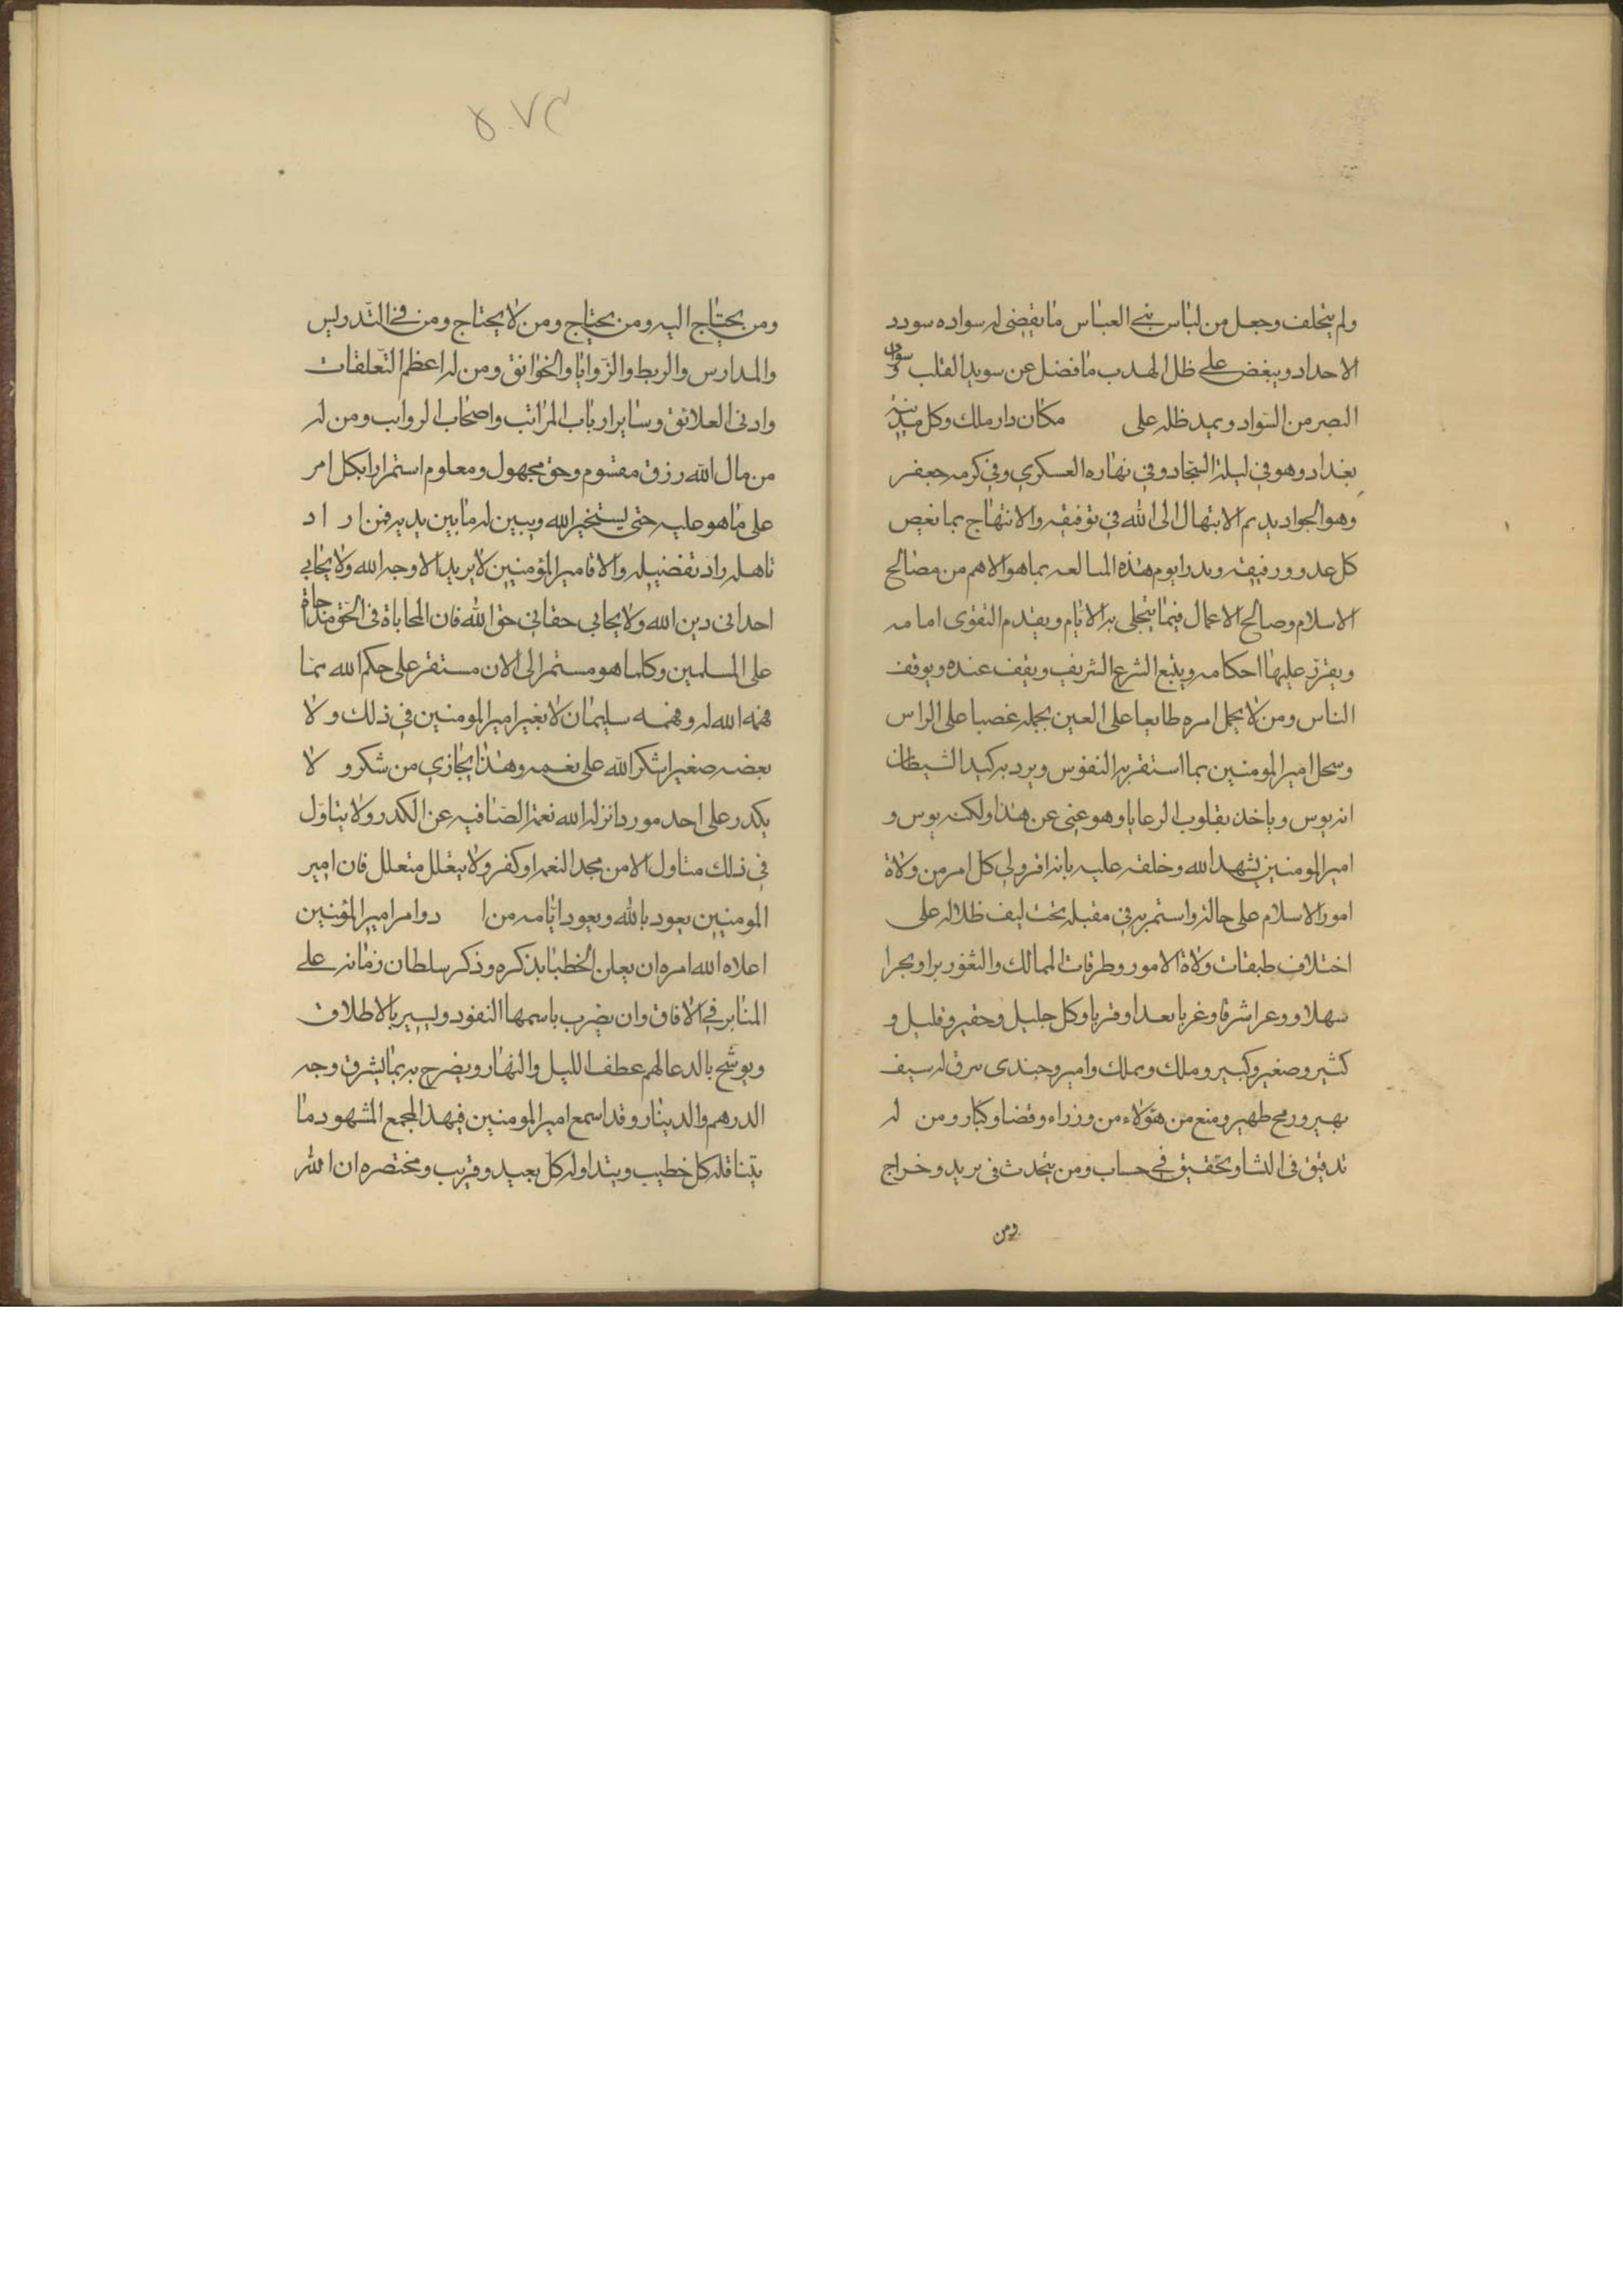 ولم يتخلف وجعل من لباس بنى العباس ما يقضى له سواده سودد
الاحداد ويبغض على ظل الهدب ما فضل عن سويدا القلب و سواد
البصر من السواد ويمد ظله على مكان دار ملك وكل مدينة
بغداد وهو في ليلة السجاد وفي نهاره العسكري وفي كرمه جعفر
وهو الجواد يديم الابتهال الى الله في توفيقه والانتهاج بما يغيص
كل عدو ورفيقه ويدرا يوم هذه المبالعه بما هو الاهم من مصالح
الاسلام وصالح الاعمال فيما يتجلى به الايام ويقدم التقوى امامه
ويقرر عليها احكامه ويتبع الشرع الشريف ويقف عنده ويوقف
الناس ومن لا يحمل امره طايعا على العين يحمله غصبا على الراس
وسحل امير المومنين بما استقر به النفوس ويرد به كيد الشيطان
انه يوس وياخذ بقلوب الرعايا وهو غنى عن هذا ولكنه يوس و
امير المومنين يشهد الله وخلقه عليه بانه اقر ولى كل امر من ولاة
امور الاسلام على حالته واستمر به في مقيله تحت ليف ظلاله على
اختلاف طبقات ولاة الامور وطرقات الممالك والثغور برا وبحرا
سهلا ووعرا شرقا وغربا بعدا وقربا وكل جليل وحقير وقليل و
كثير وصغير وكبير وملك ومملك وامير وجندى سرق له سيف
بهير ورمح طهير ومنع من هؤلاء من وزراء وقضا وكبار ومن له
تدقيق في النشا وتحقيق في حساب ومن يتحدث في بريد وخراج
ومن
ومن يحتاج اليه ومن يحتاج ومن لا يحتاج ومن في التدريس
والمدارس والربط والزوايا والخوانق ومن له اعظم التعلقات
وادنى العلائق وساير ارباب المراتب واصحاب الرواتب ومن له
من مال الله رزق مقسوم وحق مجهول ومعلوم استمرارا بكل امر
على ما هو عليه حتى يستخير الله ويبين له ما بين يديه فمن ار اد
تاهله زاد تفضيله والا فامير المؤمنين لا يريد الا وجه الله ولا يحابي
احدا في دين الله ولا يحابي حقا في حق الله فان المحاباة في الحق مداجاة
على المسلمين وكلما هو مستمر الى الان مستقر على حكم الله مما
فهمه الله له وفهمه سليمان لا يغير امير المومنين في ذلك ولا
بعضه صغيرا شكر الله على نعمه وهذا يجازي من شكر و لا
يكدر على احد موردا نزله الله نعمة الصافيه عن الكدر ولا يتاول
في ذلك متاول الا من مجد النعم او كفر ولا يتعلل متعلل فان امير
المومنين يعود بالله ويعود ايامه من ا دوامر امير المؤمنين
اعلاه الله امره ان يعلن الخطبا بذكره وذكر سلطان زمانه على
المنابر في الافاق وان يضرب باسمها النقود ويسير بالاطلاق
ويوشح بالدعا لهم عطف الليل والنهار ويضرج به بما يشرق وجه
الدرهم والدينار وقد اسمع امير المومنين في هذا المجمع المشهود ما
يتناقله كل خطيب ويتداوله كل بعيد وقريب ومختصره ان الله